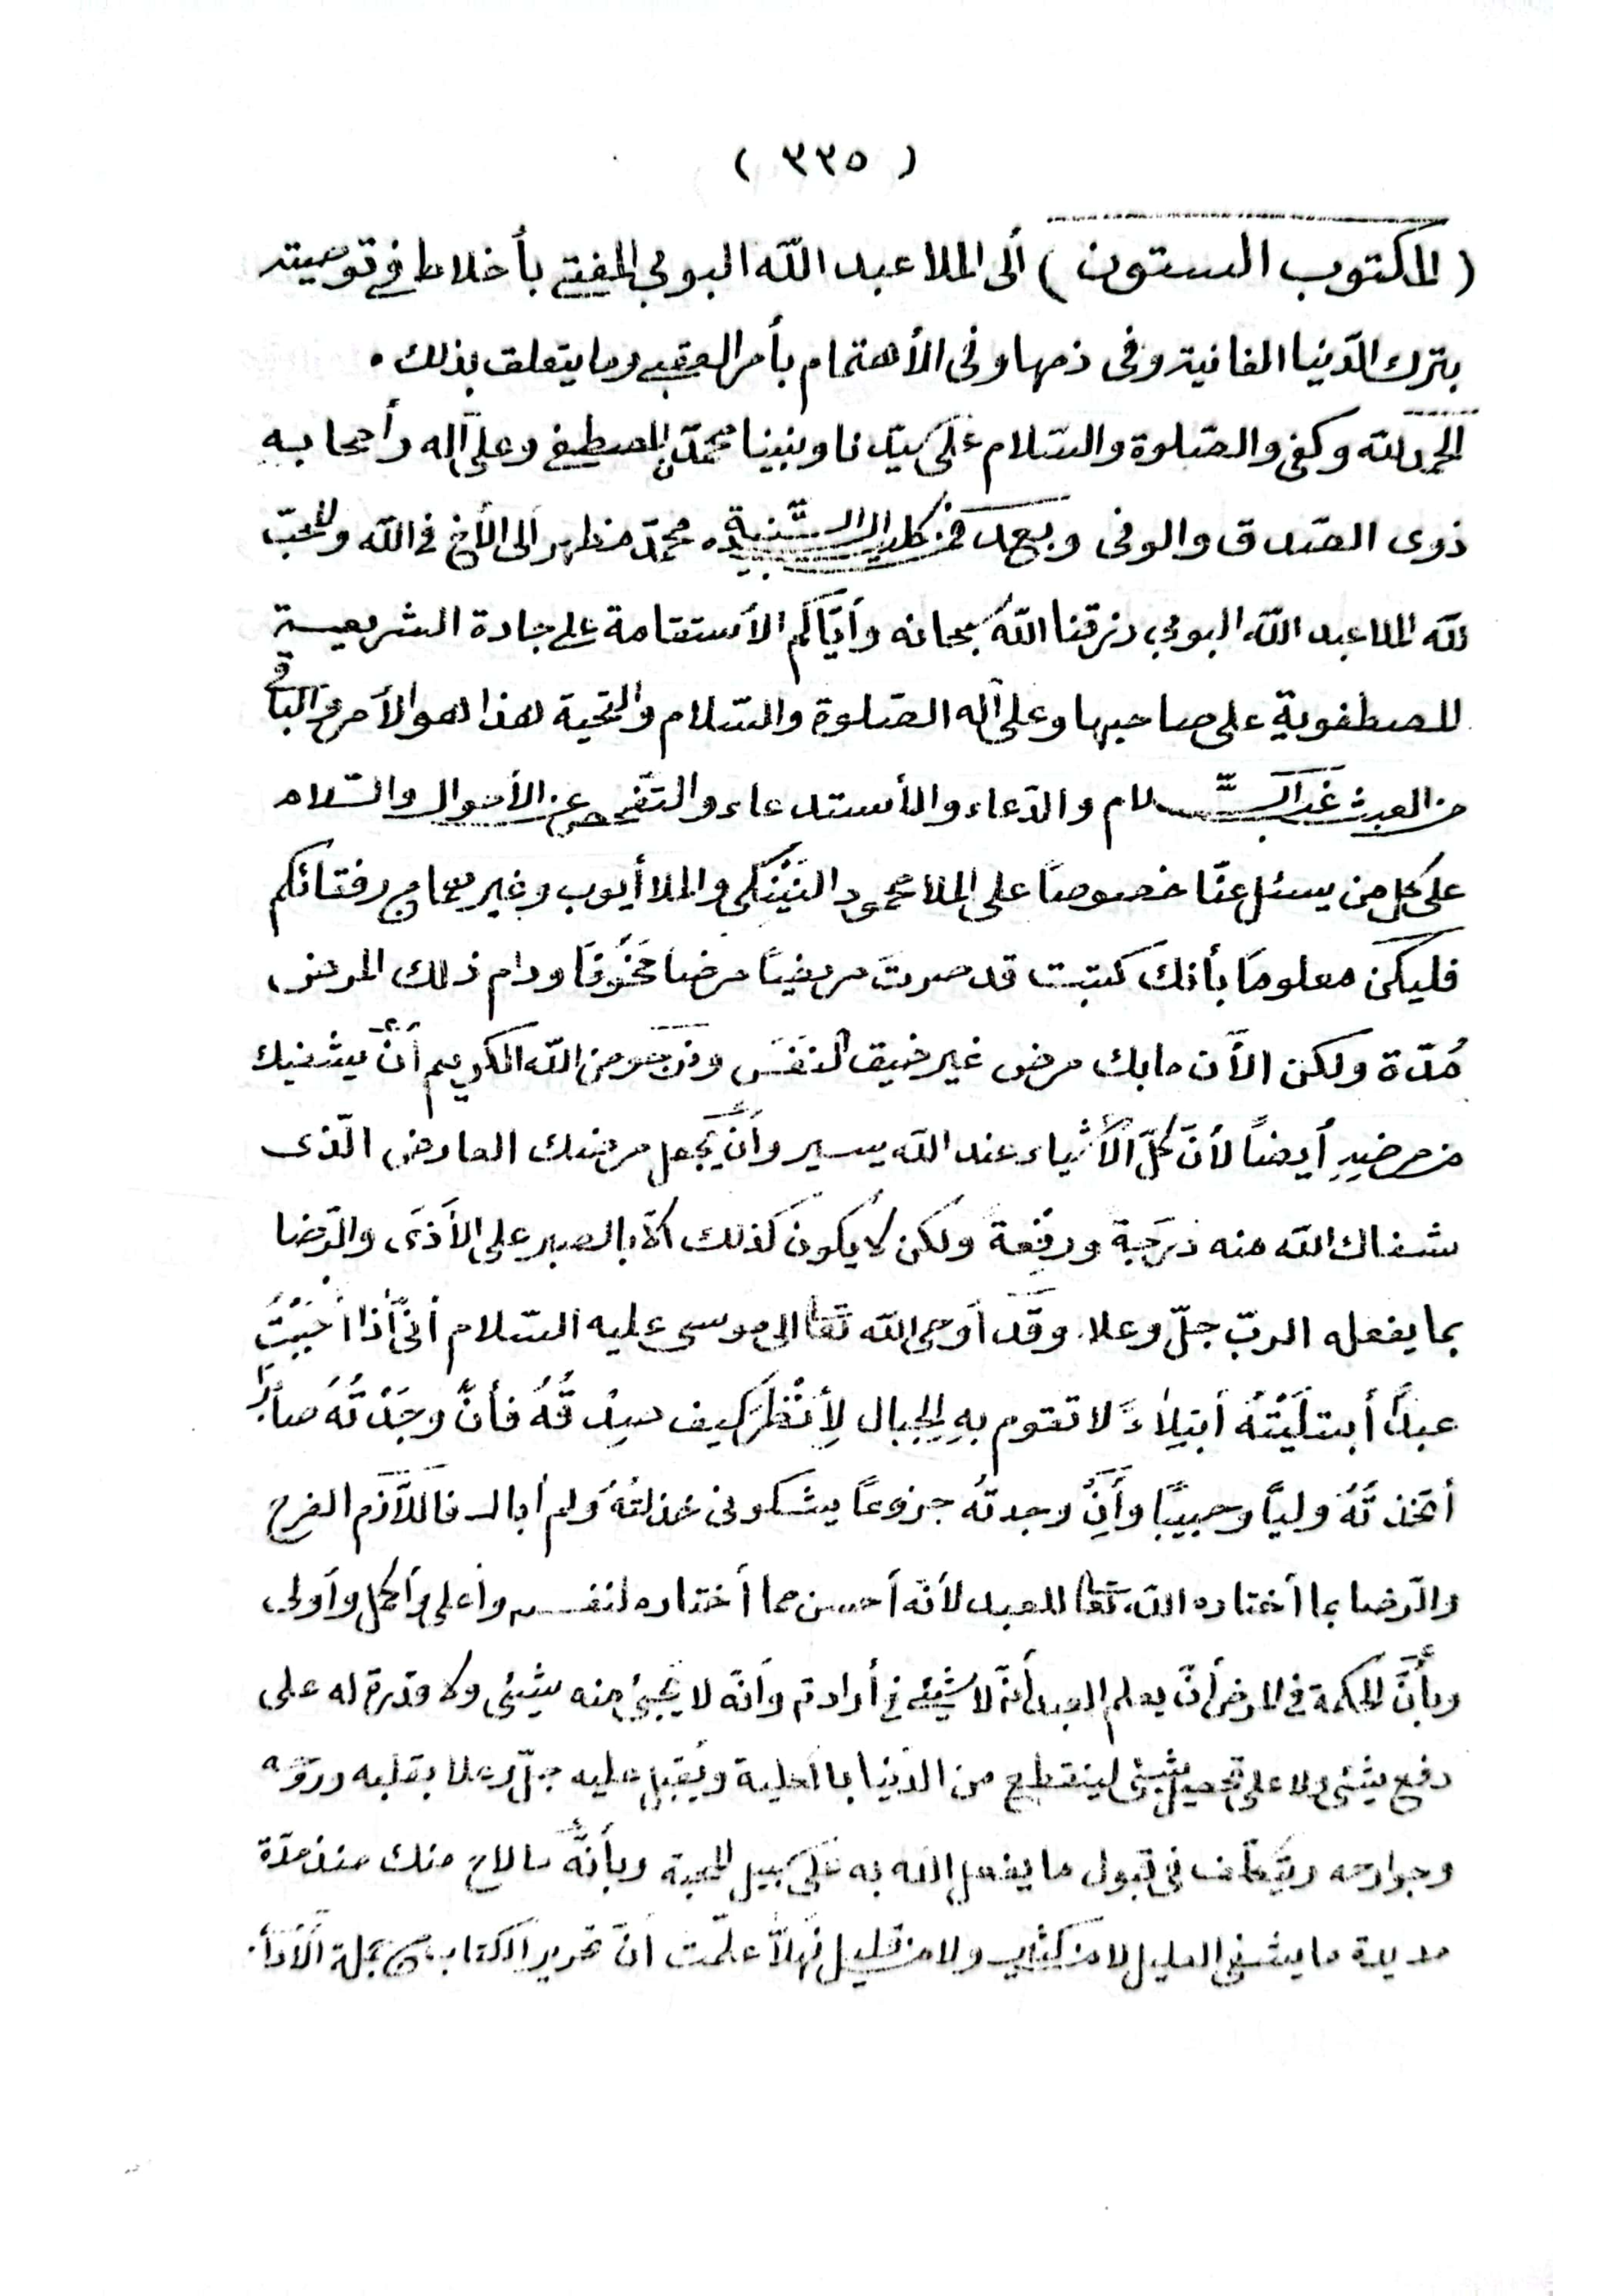 ( ٣٣٥ )
( المكتوب الستون ) ألى الملا عبد الله البوبي المفتى بأخلاط فى توصيته
بترك الدّنيا الفانية وفى ذمها وفى الأهتمام بأمر العقبى وما يتعلق بذلك .
الحمد لله وكفى والصّلوة والسّلام على سيّدنا ونبينا محمّدن المصطفى وعلى آله وأصحابه
ذوى الصّدق والوفى وبعد فمن كلب السّنية محمّد مظهر ألى الأخ فى الله والمحبّ
لله الملا عبد الله البوبي رزقنا الله سبحانه وأيّاكم الأستقامة على جادة الشريعـة
المصطفوية على صاحبها وعلى آله الصّلوة والسّلام والتحية هذا هو الأمر والباقى
من العبث غبّ السّـلام والدّعاء والأستدعاء والتفحص عن الأحوال والسّلام
على كل من يسئل عنّا خصوصاً على الملا محمود النيْنكى والملا أيوب وغيرهما من رفقائكم
فليكن معلوماً بأنك كتبت قد صرت مريضاً مرضاً مخُوفاً ودام ذلك المرض
مُدّة ولكن الآن مابك مرض غير ضيق النفَس ونرجو من الله الكريم أنْ يشفيك
من مرضِهِ أيضاً لأنّ كلّ الأشياء عند الله يسير وأنْ يجعل مرضك العارض الّذى
شفاك الله منه دَرَجَة ورفْعة ولكن لا يكون كذلك ألاّ بالصبر على الأذَى والرّضا
بما يفعله الربّ جلّ وعلا وقَد أوحى الله تعالى ألى موسى عليه السّلام أنّى أذا أحبَبْتُ
عبداً أبتلَيْتُهُ أبتِلاءً لا تقوم بهِ الجبال لِأنْظُرَ كيف صِدْقُهُ فأنْ وجَدْتُهُ صابراً
أتّخذتُهُ ولياً وحبيبًا وأَنْ وجدتهُ جزوعاً يشكونى خذلتُهُ ولم أبال فاللاّزم الفرح
والرّضا بما أختاره الله تعالى للعبد لأنّه أحسن مما أختاره لنفسه وأعلى وأكمل وأولى
وبأنّ الحكمة فى المرض أنْ يعلم العبد أنّه لا شيئ فى أرادته وأنّه لا يجيئ منه شيئى ولا قدرة له على
دفع شيئى ولا على تحصيل شيئى لينقطع من الدّنيا بالكلية ويُقبل عليه جلّ وعلا بقلبه وروحه
وجوارحه ويتكلّف فى قبول ما يفعل الله به على سبيل المحبة وبأنّه ما لاح منك منذ مدّة
مديدة ما يشفى العليل لا من كثير ولا من قليل فهلاّ علمت أنّ تحرير الكتاب من جملة الآداب